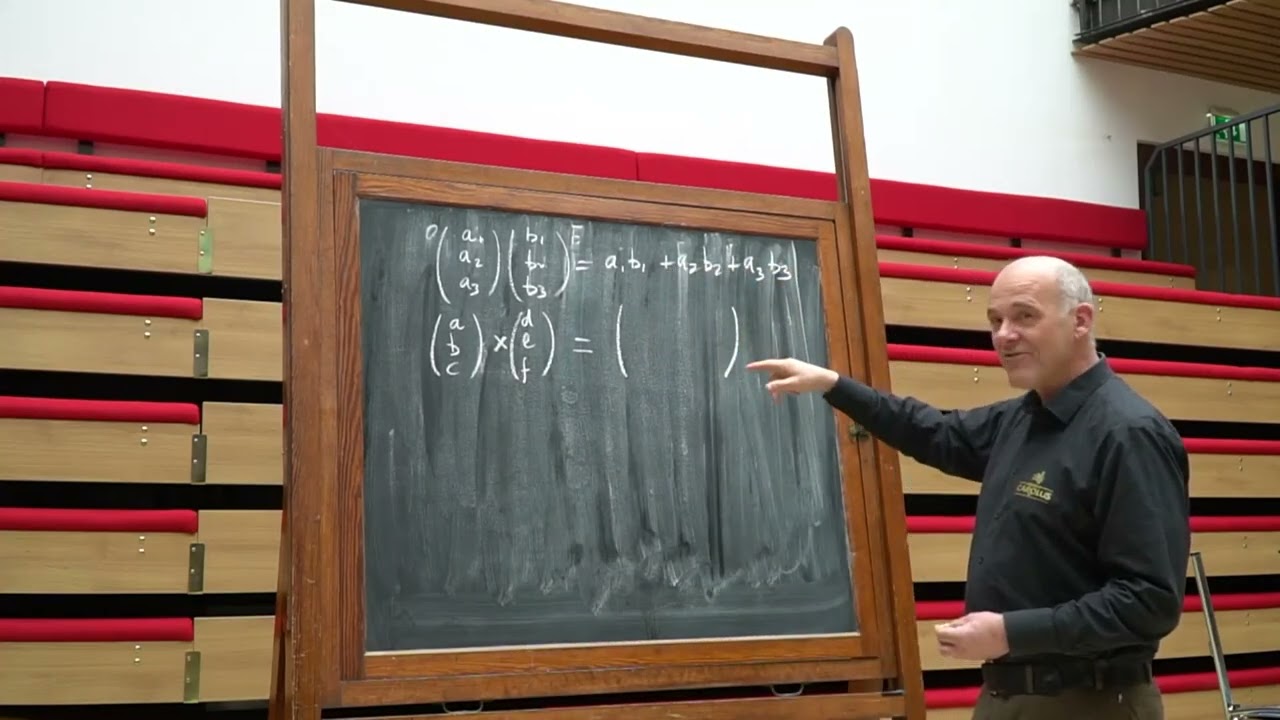 (a1 a2 a3) (b1 b2 b3) = a1b1 + a2b2 + a3b3
(a b c) × (d e f) = ( )
CAROLUS